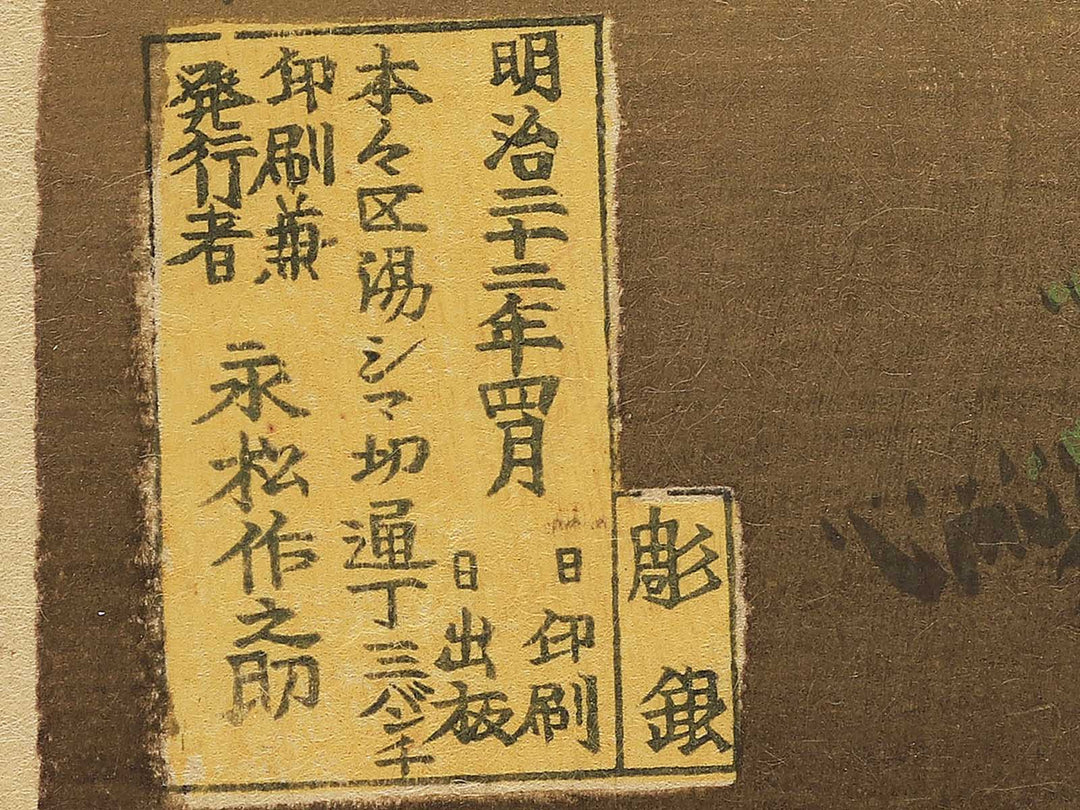 彫銀
明治二十二年四月
日印刷
日出板
本々区湯シマ切通丁三バンチ
印刷兼
発行者
永松作之助